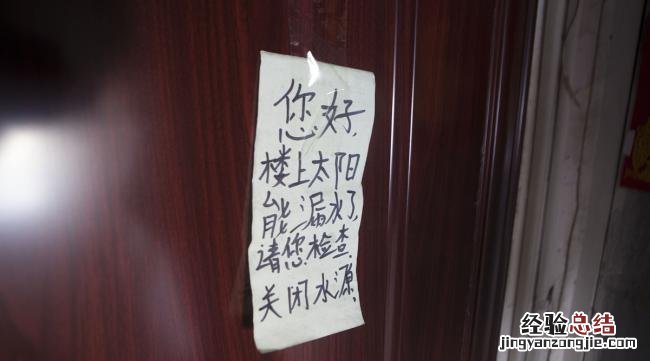 您好,
楼上太阳
能漏水了,
请您检查,
关闭水源,
经验总结
jingyanzongjie.com